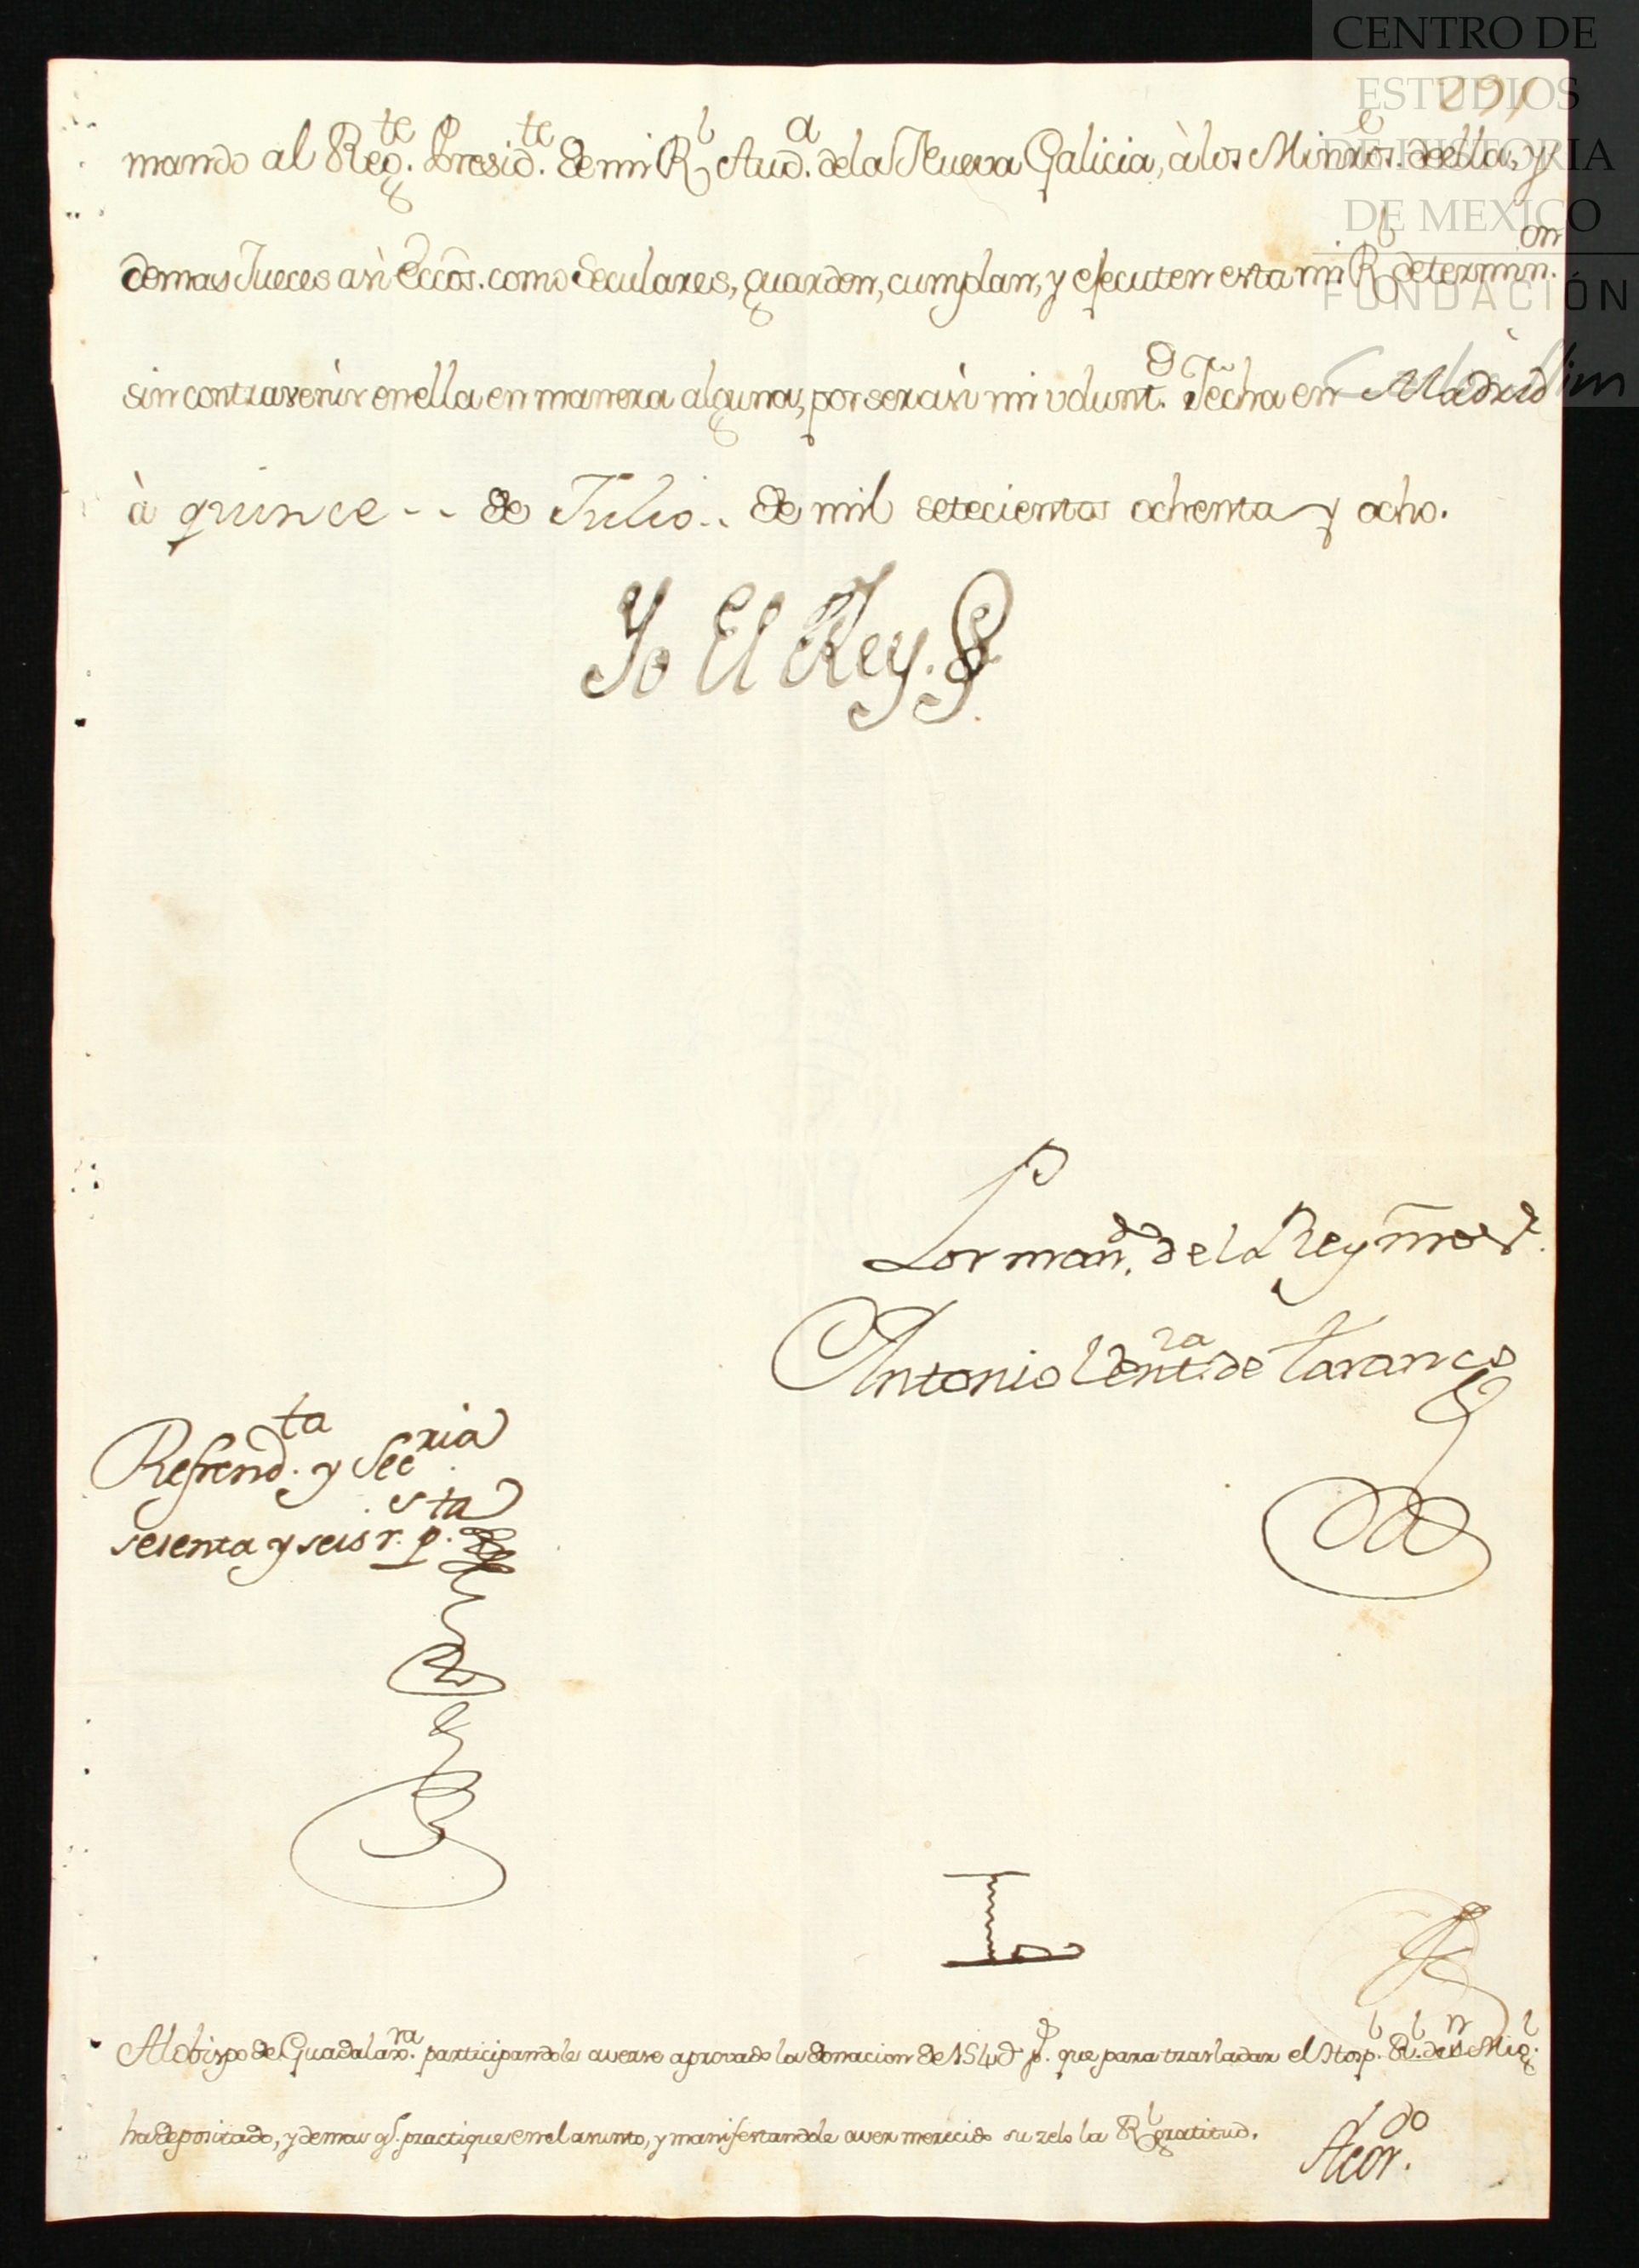 CENTRO DE
ESTUDIOS
DE HISTORIA
DE MEXICO
FUNDACIÓN
Carlos Slim
291
mando al Reg.te Presid.te de mi R.l Aud.a de la Nueva Galicia, à los Minrõs. de ella, y
demas Jueces asi Eccõs. como Seculares, guarden, cumplan, y executen esta mi R.l determin.on
sin contravenir en ella en manera alguna, por ser asi mi volunt.d Fecha en Madrid
à quince -- de Julio -- de mil setecientos ochenta y ocho.
Yo El Rey.
Por man.do del Rey nr̃o S.r
Antonio Vent.ra de Taranco
Refrend.ta y Sec.ria
sesenta y seis r.s p.ta
Al obispo de Guadalax.ra participandole averse aprovado la donacion de 154d p.s que para trasladar el Hosp.l R.l de S.n Mig.l
ha depositado, y demas q.e practique en el asunto, y manifestandole aver merecido su zelo la R.l gratitud.
Acor.do